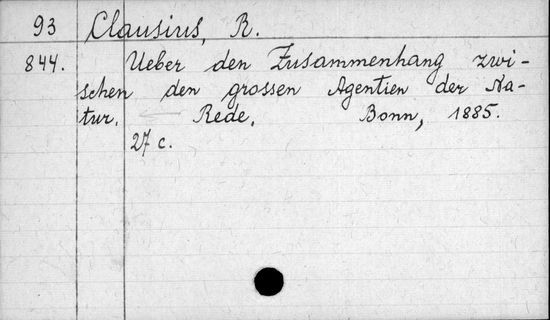 93 Clausius, R.
844. Ueber den Zusammenhang zwi-
schen den grossen Agentien der Na-
tur. Rede. Bonn, 1885.
27 c.